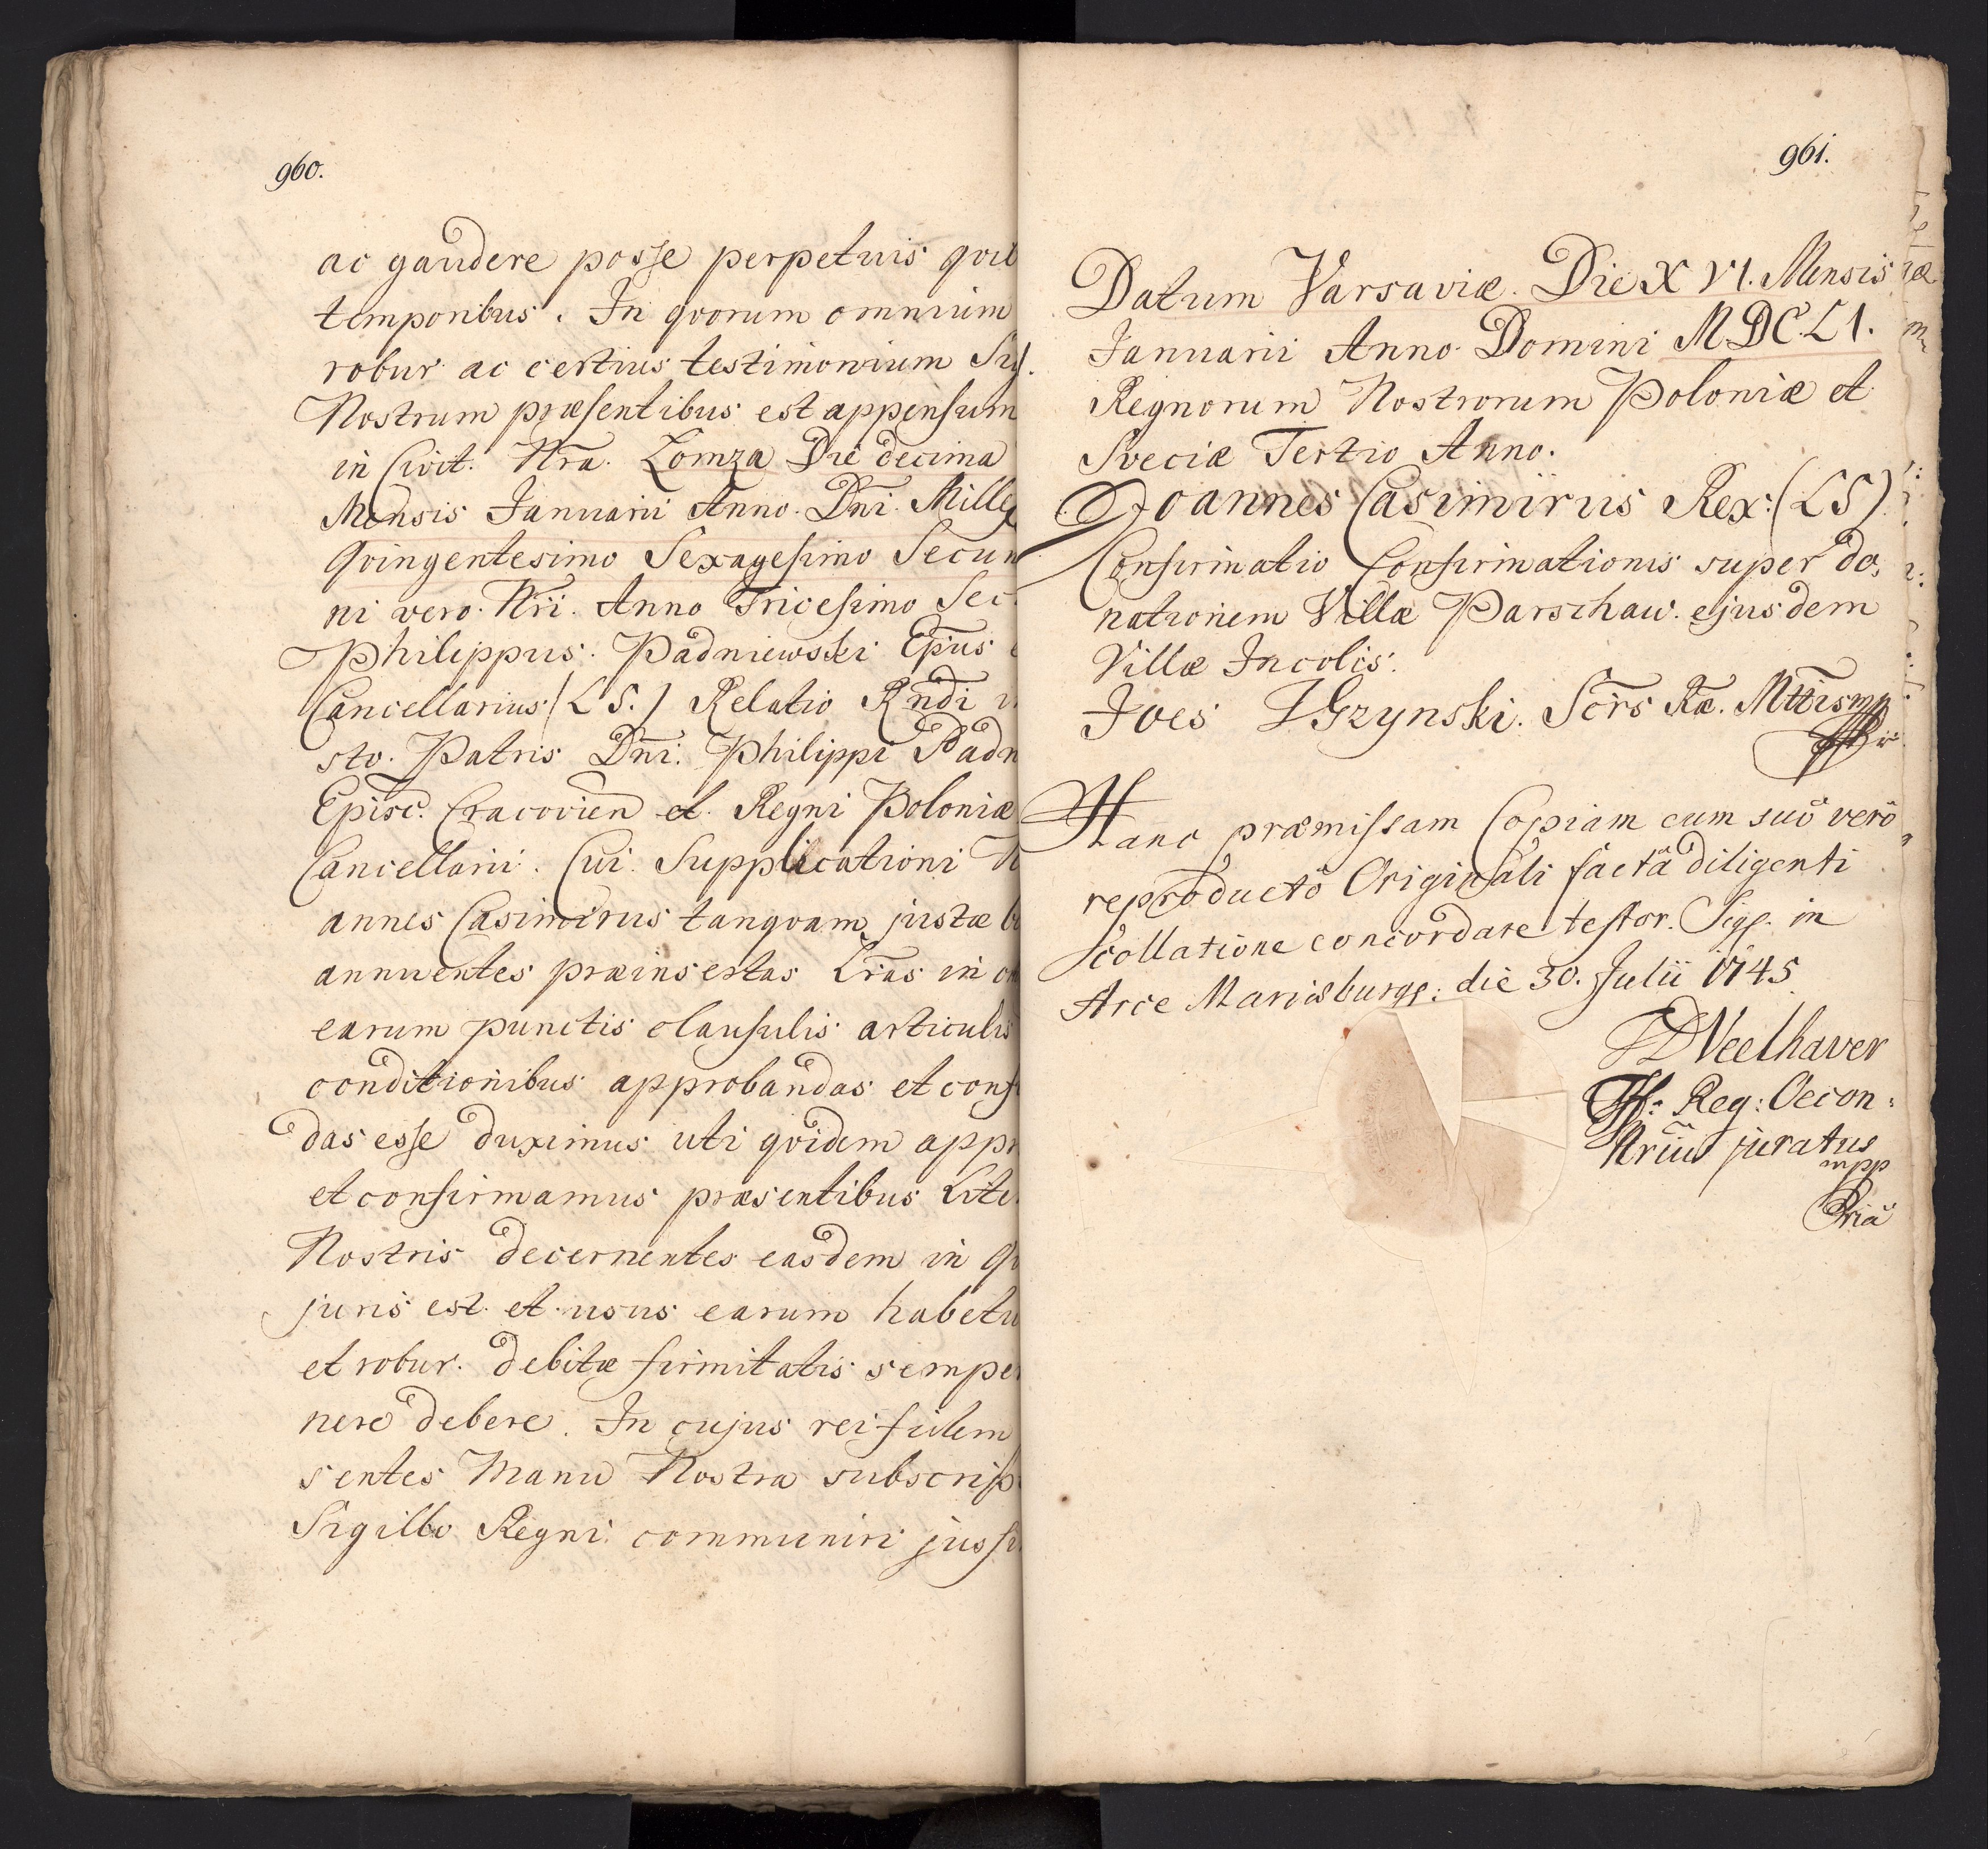 960.
ac gaudere posse perpetuis qui
temporibus. In qvorum omnium
robur ac certius testimonium Sig
Nostrum præsentibus est appensum
in Civit. Nra. Lomza Die decima
Mensis Januarii Anno Dni. Mille
Qvingentesimo Sexagesimo Secun
ni vero Nri. Anno Tricesimo Sec
Philippus Padniewski Epus
Cancellarius (LS.) Relatio Rndi
sto Patris Dni. Philippi Padn
Episc. Cracovien et Regni Poloniæ
Cancellarii. Cui Supplicationi
annes Casimirus tanqvam justæ
annuentes præinsertas Lras in
earum punctis clausulis articulis
conditionibus approbandas et conf
das esse duximus uti qvidem app
et confirmamus præsentibus Lite
Nostris decernentes easdem in
juris est et usus earum habetu
et robur debitæ firmitatis sempe
nere debere. In cujus rei fidem
sentes Manu Nostra subscrip
Sigillo Regni communiri jussi
961.
Datum Varsaviæ Die XVI. Mensis
Januarii Anno Domini MDCLI.
Regnorum Nostrorum Poloniæ et
Sveciæ Tertio Anno.
Joannes Casimirus Rex (LS)
Confirmatio Confirmationis super do,
nationem Villæ Parschau ejusdem
Villæ Incolis.
Joes Scrs Ræ. Mttis mp
Hanc præmissam Copiam cum suô verô
reproductô Originali factâ diligenti
collatione concordare testor. Sigs. in
Arce Mariæburgs: die 30. Julii 1745
Reg: Oecon:
juratus
mpp